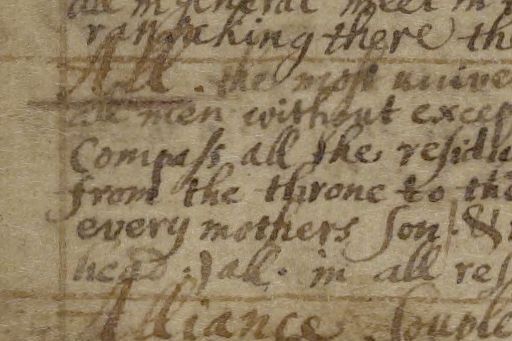 all in general meet in
ransaking there the
All. the most unive
all men without excep
Compass all the residu
from the throne to the
every mothers son. &
head.) all. in all res
Alliance. Couple